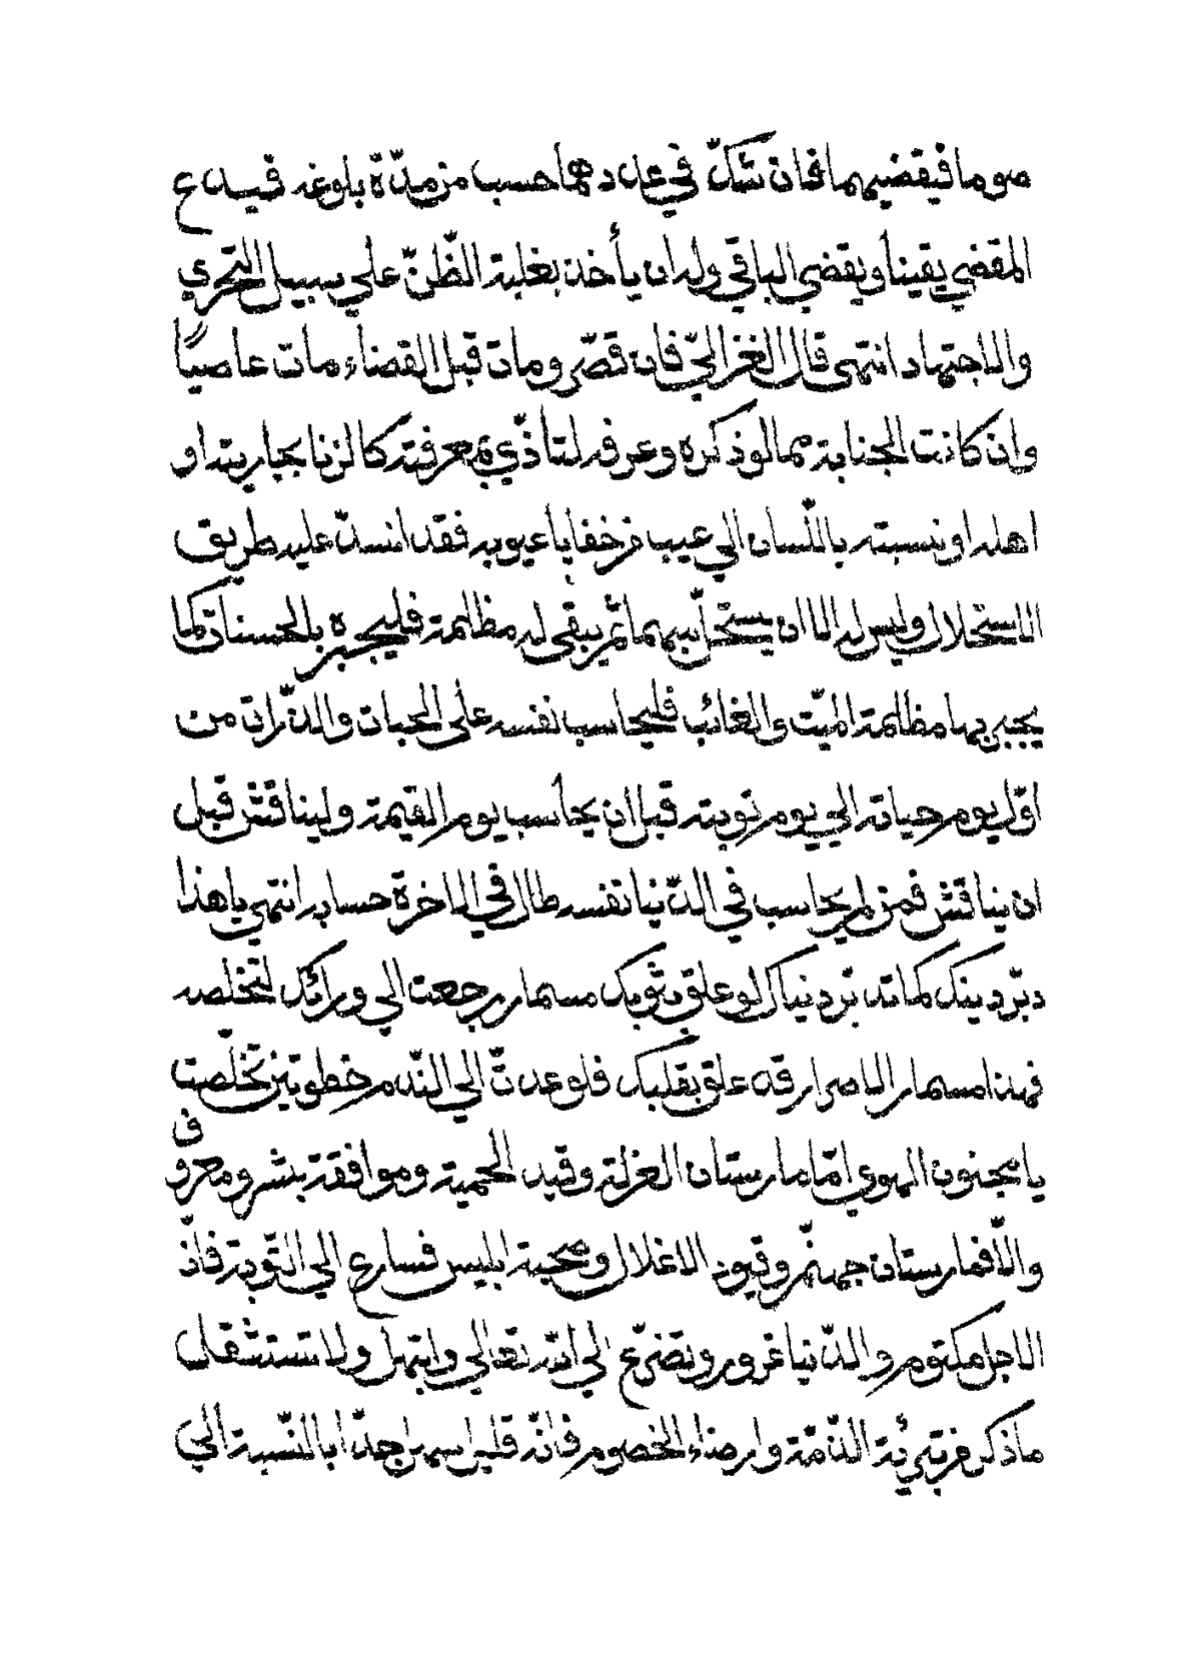 صوما فيقضيهما فان شكّ في عددهما حسب من مدّة بلوغه فيدع
المقضي يقينا ويقضي الباقي وله ان يأخذ بغلبة الظّنّ علي سبيل التحري
والاجتهاد انتهى قال الغزاليّ فان قصّر ومات قبل القضاء مات عاصيًا
وان كانت الجناية مما لو ذكره وعرفه لتأذّي بمعرفته كالزنا بجاريته او
اهله او نسبته باللّسان الي عيب من خفايا عيوبه فقد انسدّ عليه طريق
الاستحلال وليس له الا ان يستحلّ مبهما ثم يبقى له مظالمة فليجبره بالحسنات كما
يجبر بها مظالمة الميّت والغائب فليحاسب نفسه على الحبات والذّرات من
اوّل يوم حياته الي يوم توبته قبل ان يحاسب يوم القيمة وليناقش قبل
ان يناقش فمن لم يحاسب في الدّنيا نفسه طال في الاخرة حسابه انتهي يا هذا
دبّر دينك كما تدبّر دنياك لو علق بثوبك مسمار رجعت الي ورائك لتخلّصه
فهذا مسمار الاصرار قد علق بقلبك فلو عدتّ الي النّدم خطوتين تخلّصت
يا مجنون الهوي امّا مارستان العزلة وقيد الحمية وموافقة بشر ومعروف
والّا فمارستان جهنّم وقيود الاغلال وصحبة ابليس فسارع الي التّوبة فانّ
الاجل مكتوم والدّنيا غرور وتضرّع الي الله تعالي وابتهل ولا تستثقل
ما ذكر من تبرئة الذّمّة وارضاء الخصوم فانّه قليل يسير جدّا بالنّسبة الي